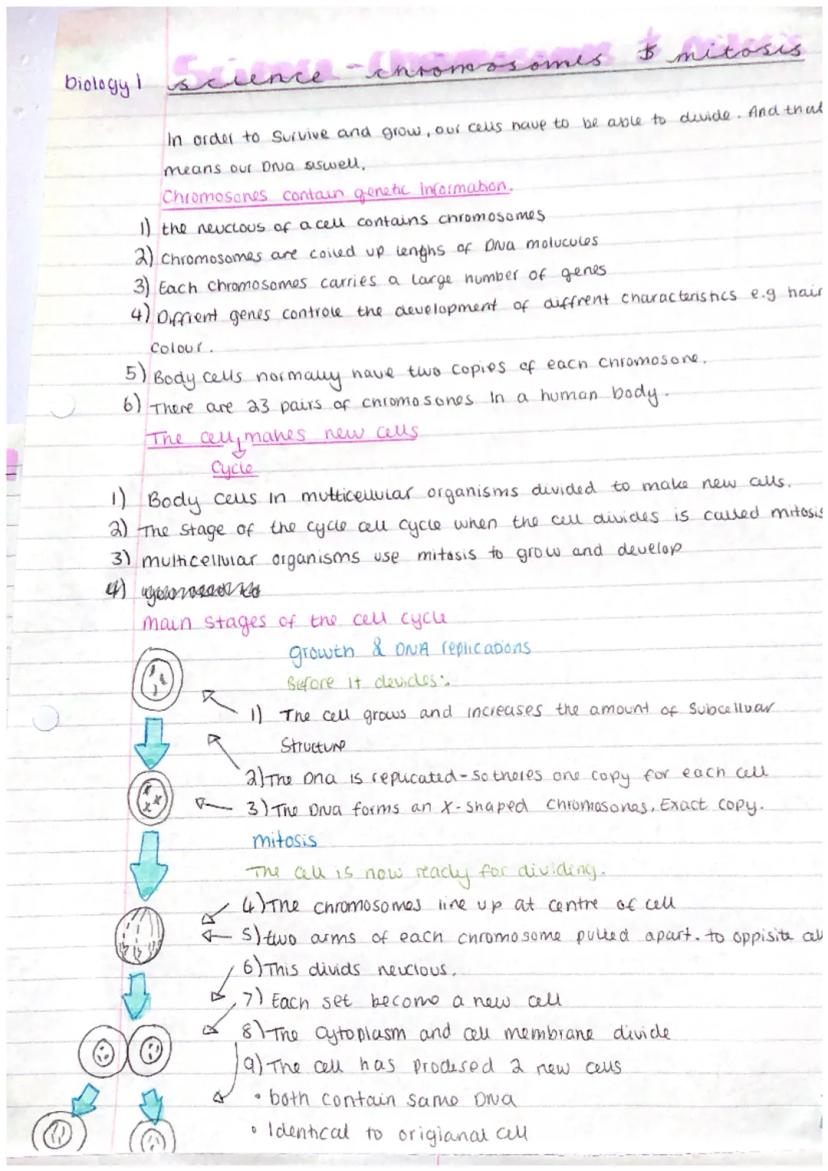 biology 1 science - chromosomes & mitosis
In order to survive and grow, our cells have to be able to devide. And that
means our DNA aswell.
Chromosones contain genetic information.
1) the neuclous of a cell contains chromosomes
2) Chromosomes are coiled up lenghs of DNA molucules
3) Each chromosomes carries a large number of genes
4) Diffrient genes controle the development of diffrent characteristics e.g hair
colour.
5) Body cells normally have two copies of each chromosone.
6) There are 23 pairs of chromosones in a human body.
The cell makes new cells
Cycle
1) Body cells in multicellular organisms divided to make new cells.
2) The stage of the cycle cell cycle when the cell divides is called mitosis
3) multicellular organisms use mitosis to grow and develop
4)
main stages of the cell cycle
growth & DNA replications
Before it devides:
1) The cell grows and increases the amount of subcelluar
Structure
2) The Dna is replicated - so theres one copy for each cell
3) The DNA forms an X-shaped chromosones. Exact copy.
mitosis
The cell is now ready for dividing.
4) The chromosomes line up at centre of cell
5) two arms of each chromosome pulled apart. to oppisite cell
6) This divids neuclous.
7) Each set become a new cell
8) The cytoplasm and cell membrane divide
9) The cell has prodused 2 new cells
• both contain same DNA
• Identical to origianal cell